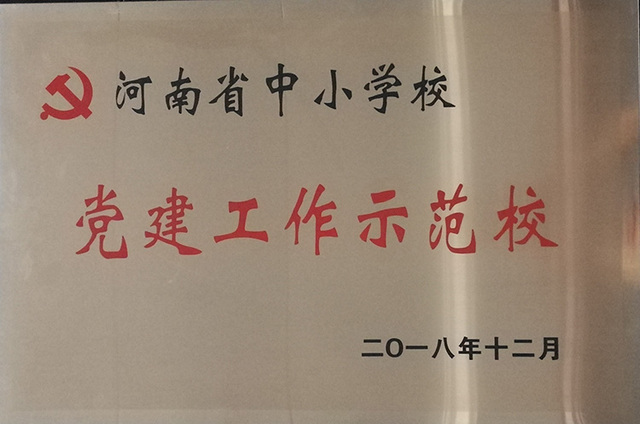 河南省中小学校
党建工作示范校
二〇一八年十二月